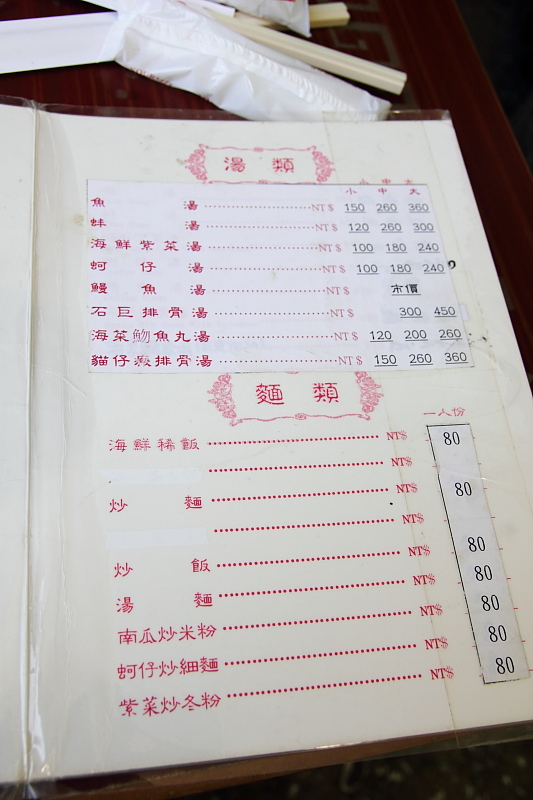 湯 類
小 中 大
魚 湯 NT$ 150 260 360
蚌 湯 NT$ 120 260 300
海鮮紫菜湯 NT$ 100 180 240
蚵仔湯 NT$ 100 180 240
鰻魚湯 NT$ 市價
石巨排骨湯 300 450
海菜魩魚丸湯 NT$ 120 200 260
貓仔瘢排骨湯 NT$ 150 260 360
麵 類
一人份
海鮮稀飯 NT$ 80
NT$
炒 麵 NT$ 80
NT$
炒 飯 NT$ 80
湯 麵 NT$ 80
南瓜炒米粉 NT$ 80
蚵仔炒細麵 NT$ 80
紫菜炒冬粉 NT$ 80